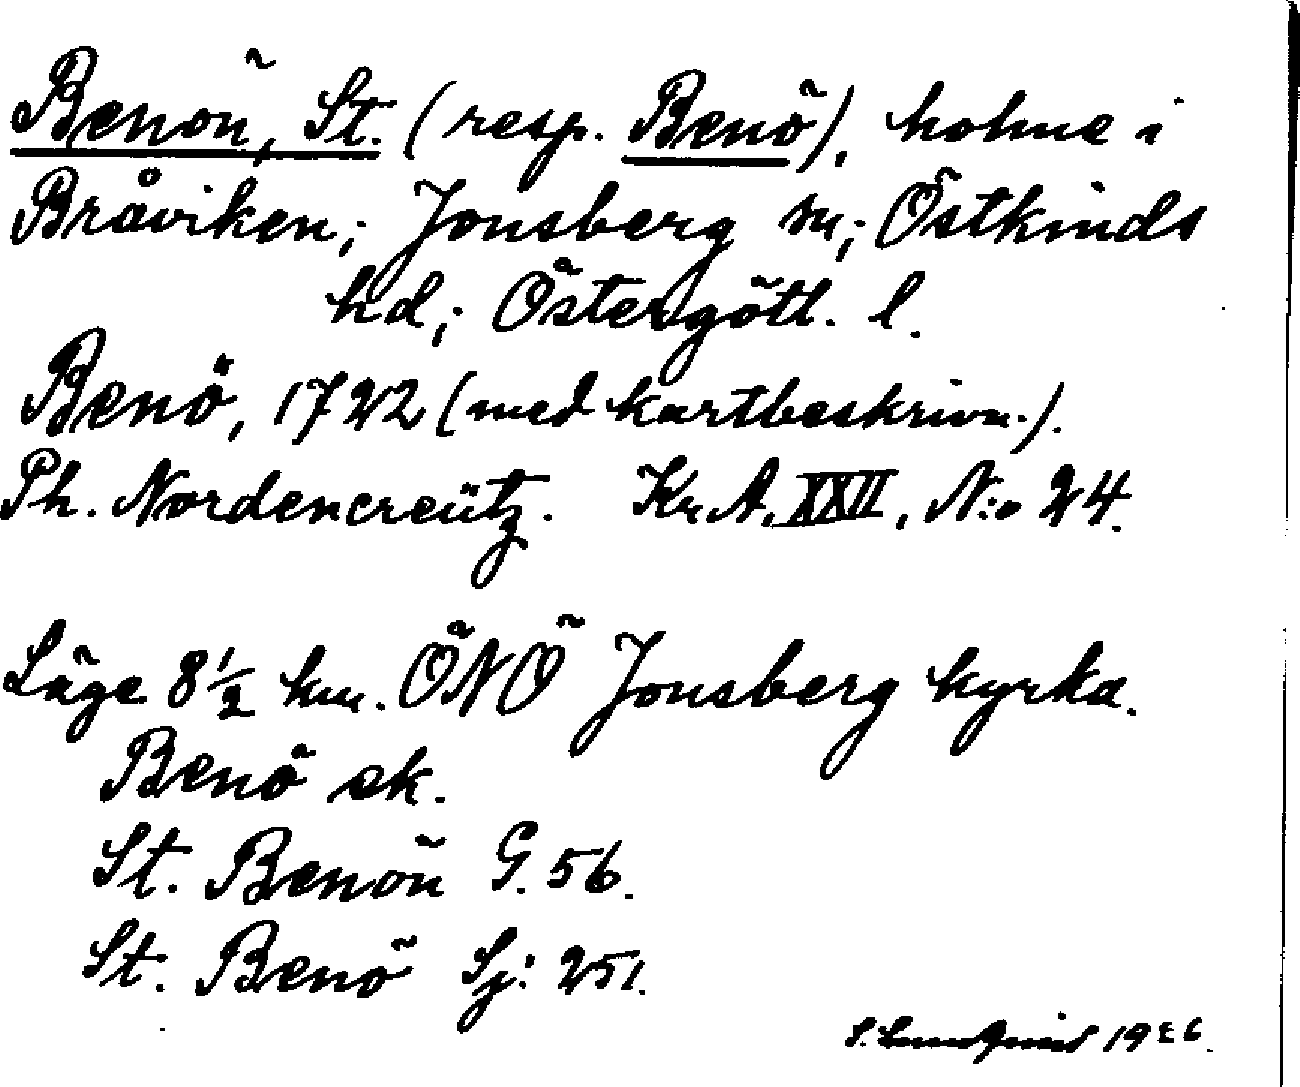 Benön, St. (resp. Benö), holme i
Bråviken; Jonsberg sn; Östkinds
hd; Östergötl. l.
Benö, 1722 (med kartbeskrivn.).
Ph. Nordencreütz. Kr. A. XXII, N:o 24.
Läge 8 1/2 km. ÖNÖ Jonsberg kyrka.
Benö ek.
St. Benön G. 56.
St. Benö Sj: 251.
S. Lundquist 1926.